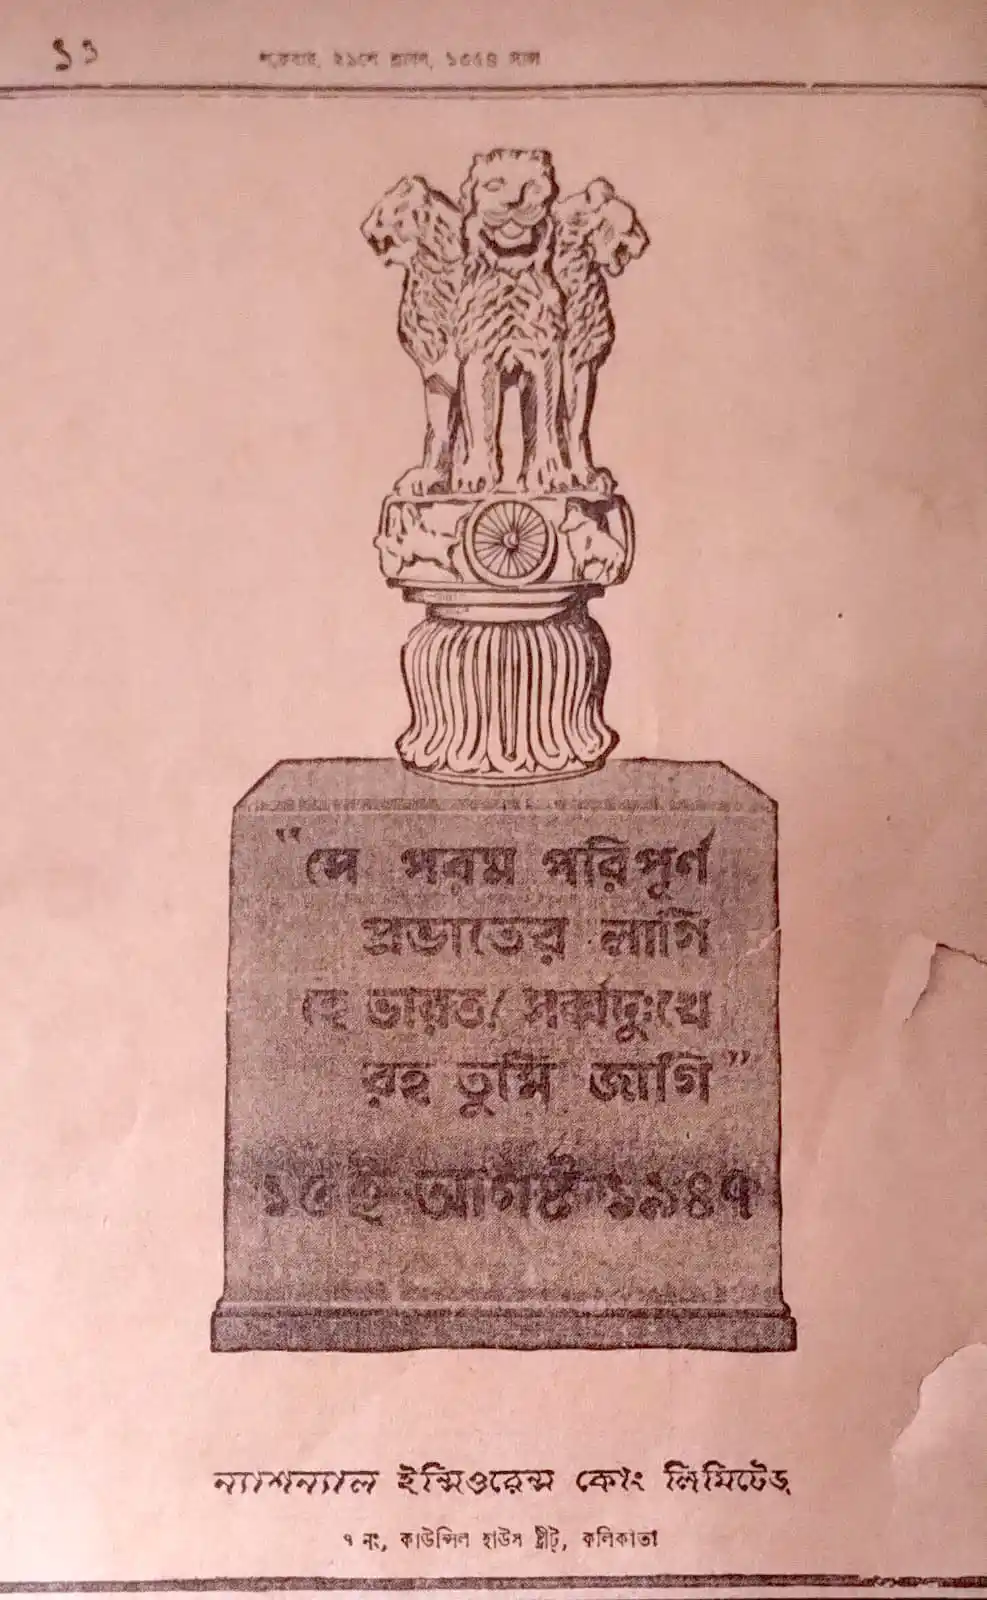 ১৩
শুক্রবার, ২৯শে শ্রাবণ, ১৩৫৪ সাল
"সে পরম পরিপূর্ণ
প্রভাতের লাগি
হে ভারত, সর্ব্বদুঃখে
রহ তুমি জাগি"
১৫ই আগষ্ট ১৯৪৭
ন্যাশন্যাল ইন্সিওরেন্স কোং লিমিটেড্
৭ নং, কাউন্সিল হাউস ষ্ট্রীট্, কলিকাতা